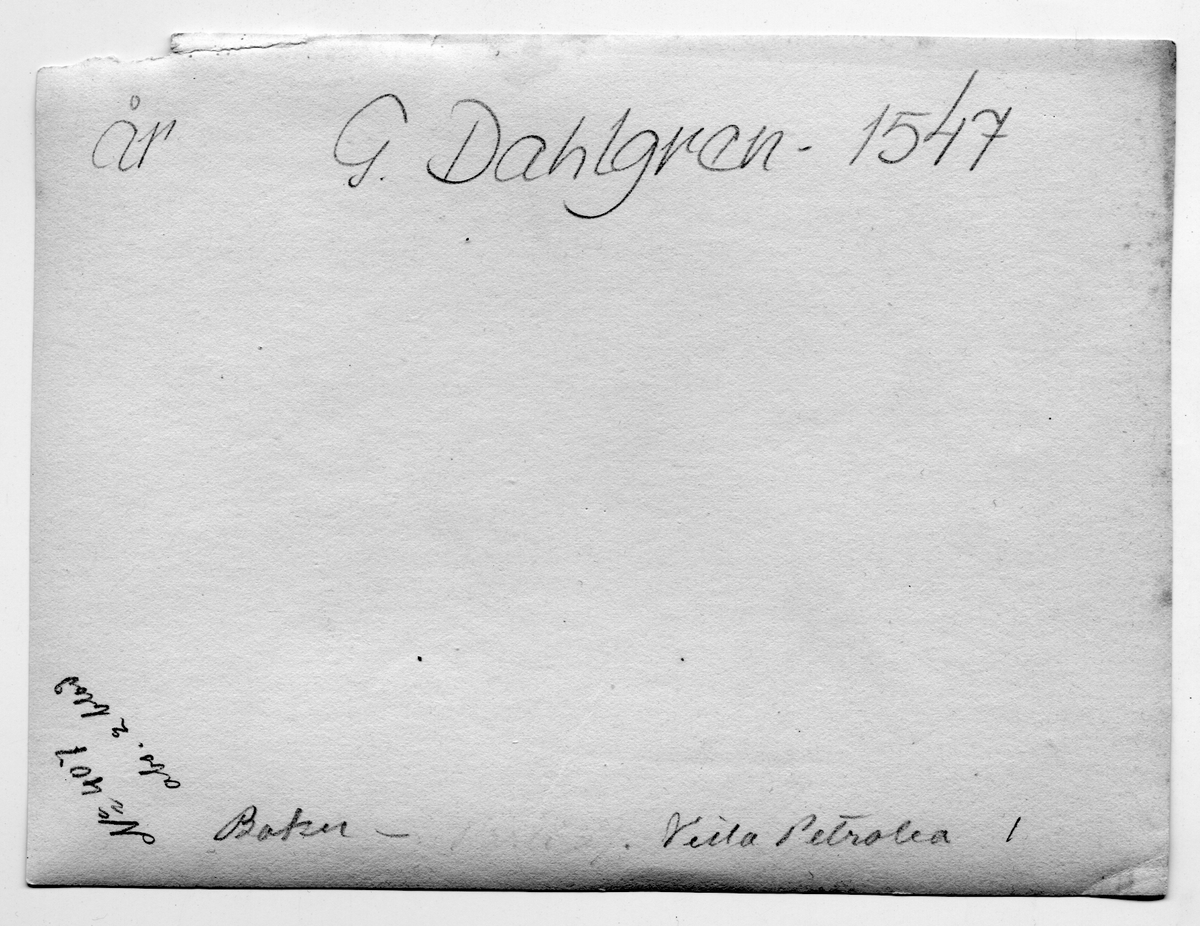 år G. Dahlgren - 1547
No 407
abs. 2 blad
Baker - Villa Petrolea 1